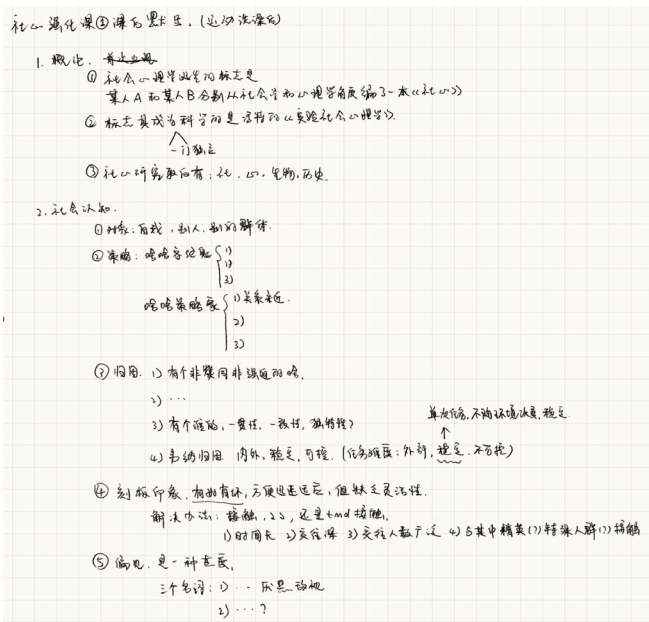 社心强化课①课后默写.(运动洗澡后)
1. 概论.
① 社会心理学诞生的标志是
某人A和某人B分别从社会学和心理学角度编了一本《社心》
② 标志其成为科学的是 的《实验社会心理学》.
一门独立
③ 社心研究取向有:社、心、生物、历史.
2. 社会认知.
① 对象:自我、别人、别的群体.
② 策略:啥啥家 { 1)
2)
3)
啥啥策略家 { 1)关系亲近.
2)
3)
③ 归因. 1) 有个非 因非 的啥.
2) …
3) 有个谁的,一贯性,一致性,独特性?
单次任务,不随环境改变,稳定
↑
4) 韦纳归因 内外,稳定,可控.(任务难度:外部,稳定.不可控)
④ 刻板印象.有好有坏,方便迅速适应,但缺乏灵活性.
解决办法:接触,22,还是tmd接触,
1)时间长 2)交往深 3)交往人数广泛 4)与其中精英(?)特殊人群(?)接触
⑤ 偏见.是一种态度,
三个名词:1) … 厌恶
2) …?